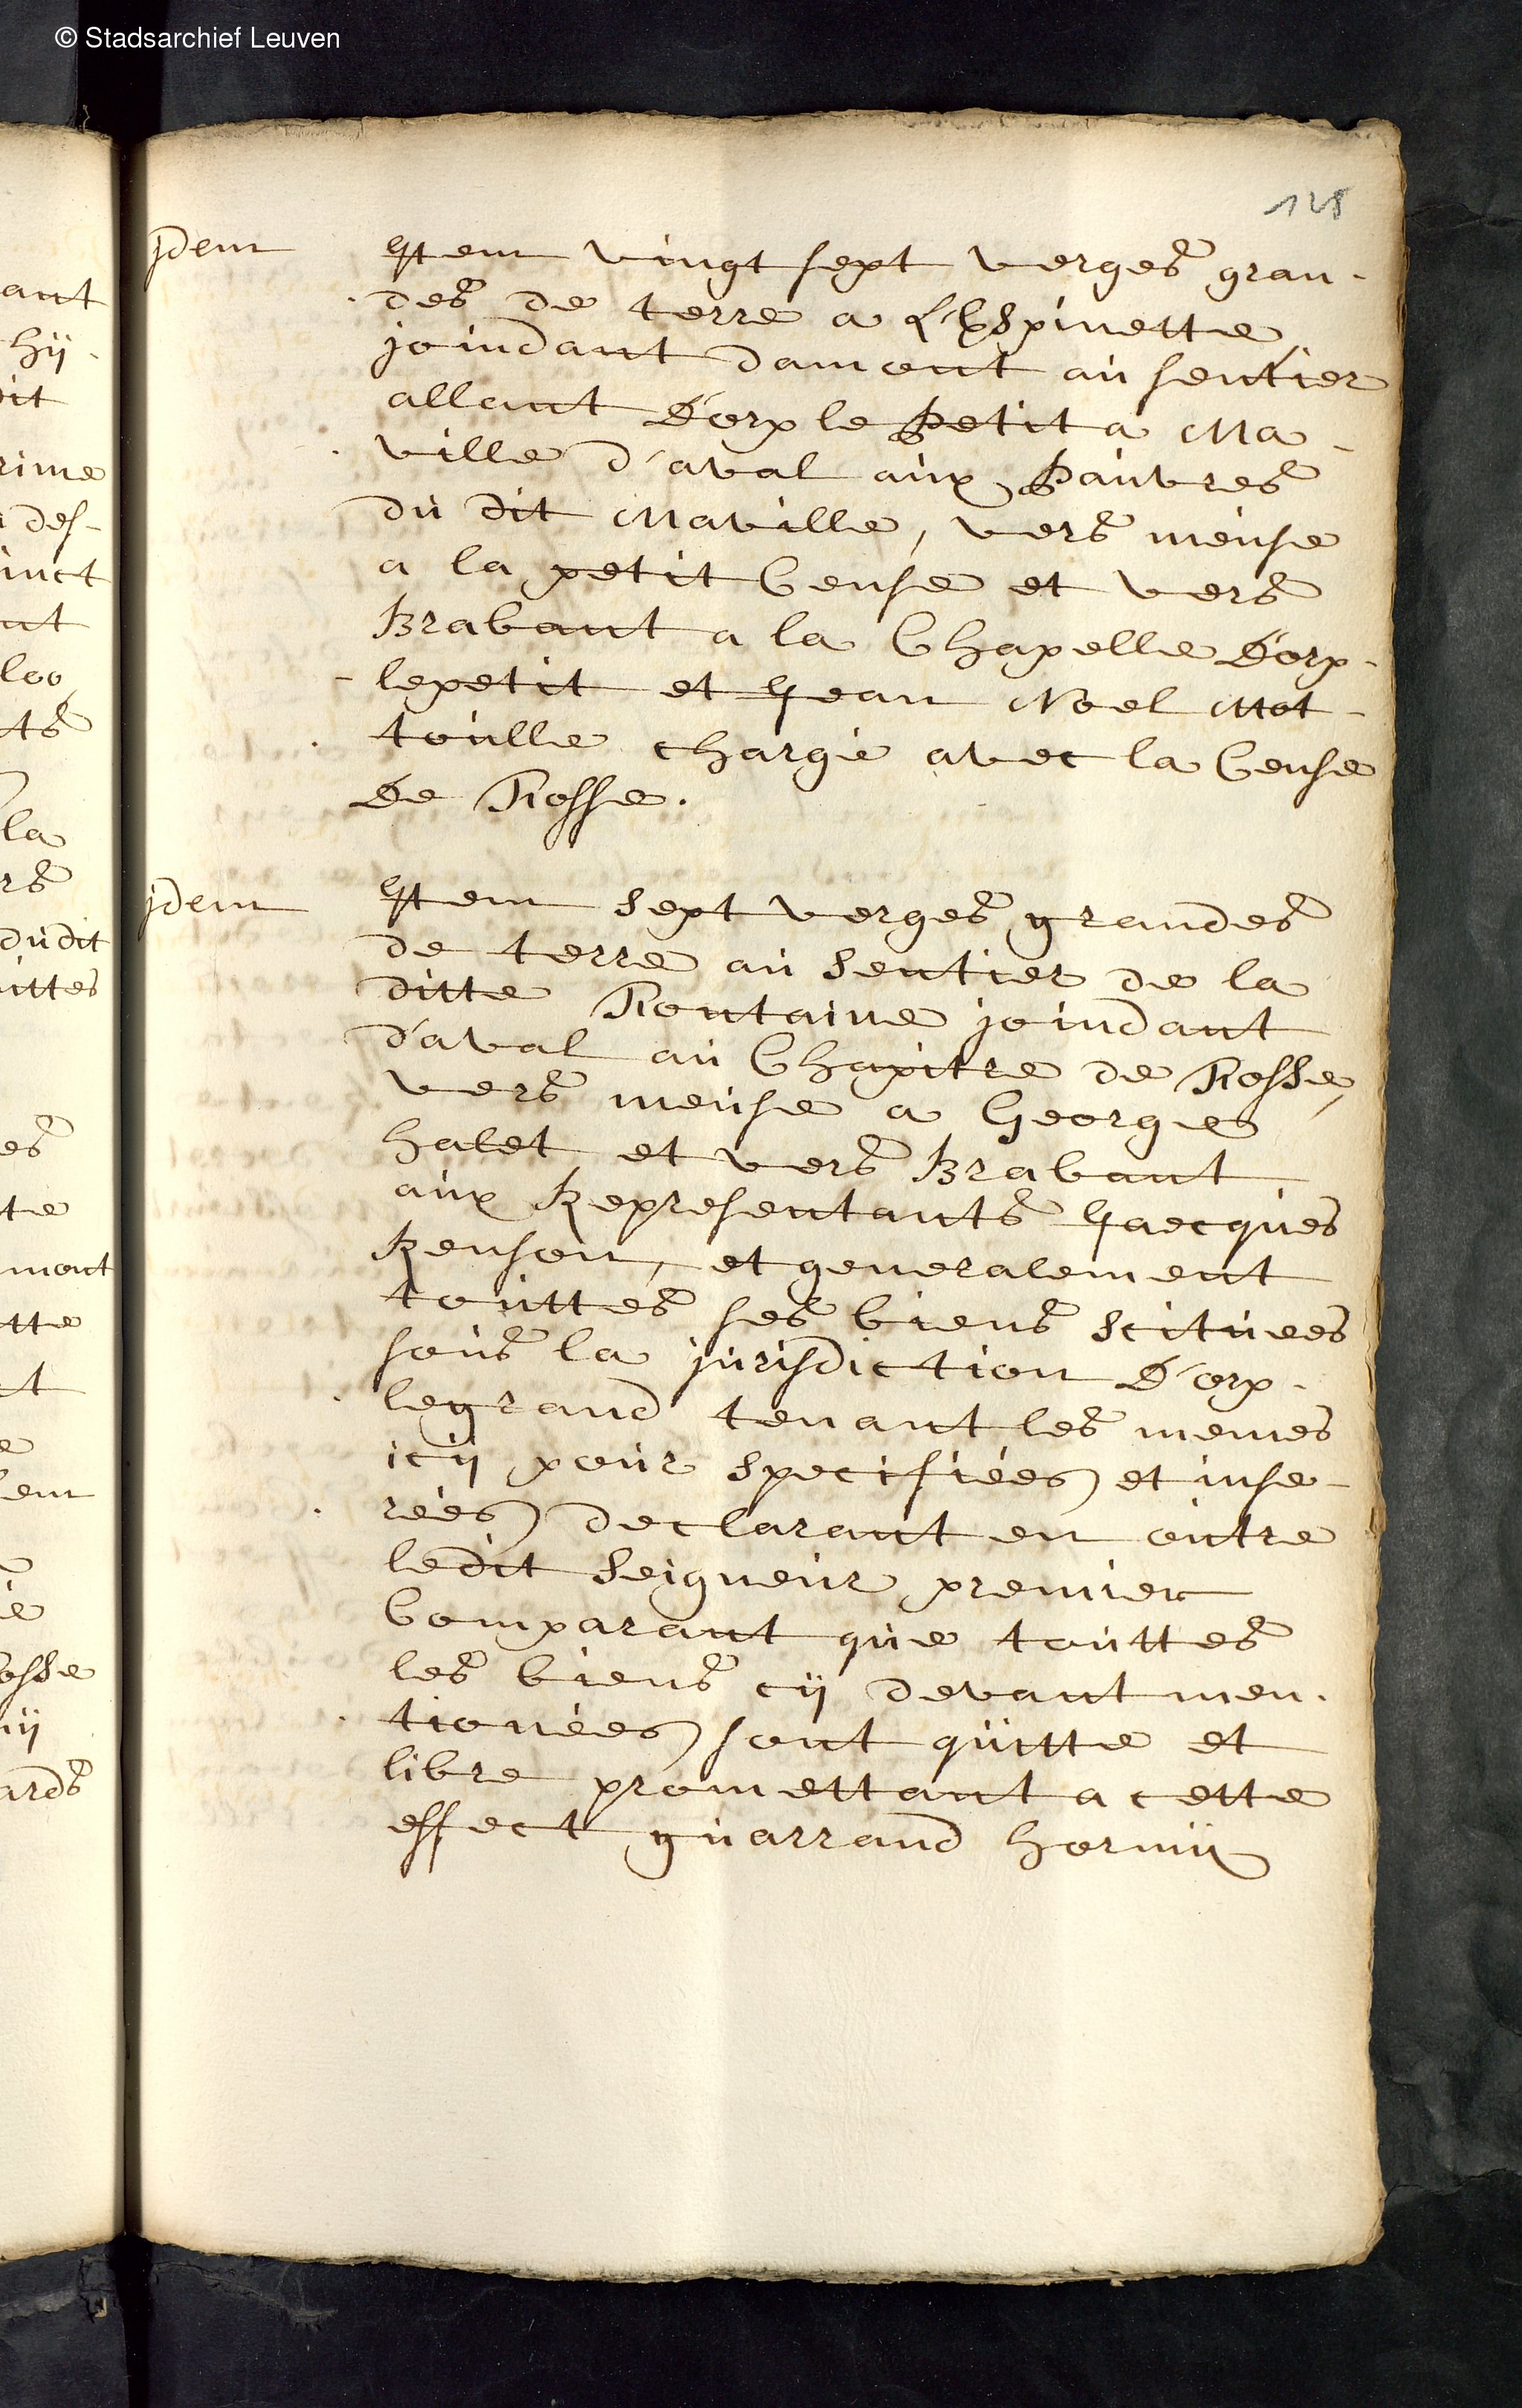 © Stadsarchief Leuven
128
jdem
Item vingt sept verges gran-
des de terre a L'Espinette,
joindant damont au sentier
allant D'orp le Petit a Ma-
ville d'aval aux Pauvres
du dit Maville, vers meuse
a la petit Cense et vers
Brabant a la Chapelle D'orp-
lepetit et Jean Noel Mot-
toulle chargé avec la Cense
De Fosse.
jdem
Item sept verges grandes
de terre au sentier de la
ditte Fontaine joindant
d'aval au Chapitre de Fosse,
vers meuse a Georges
halet et vers Brabant
aux Representants Jacques
Renson, et generalement
touttes ses biens scituees
sous la jurisdiction D'orp-
legrand tenant les memes
icÿ pour specifiées et inse-
rées declarant en outre
ledit Seigneur premier
Comparant que touttes
les biens cÿ devant men-
tionées sont quitte et
libre promettant a cette
effect guarrand hormis
ant
hÿ-
dit
rime
des-
inct
nt
loo
ts
la
rs
dudit
uttes
es
te
mont
tte
t
e
em
é
osse
uÿ
ards